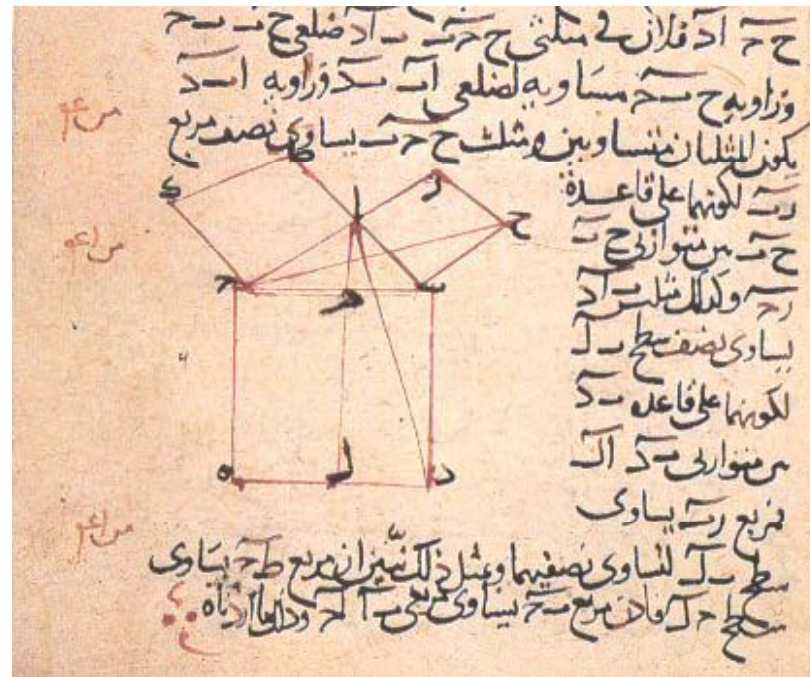 ح ج اد فلان في مثلثي ح ب ج ب اد ضلعي ح ب ب ج
وزاويه ح ب ج مساويه لضلعي اب ب د وزاويه اب د
يكون المثلثان متساويين ومثلث ح ب ج يساوي نصف مربع
رب لكونهما على قاعدة
ح ب بين متوازيي ح ب
رج وكذلك مثلث ب اد
يساوى نصف سطح ب ل
لكونهما على قاعده ب د
بين متوازيي ب د ال
فمربع رب يساوى
سطح ب ل لتساوى نصفيهما وبمثل ذلك نبين ان مربع ط ج يساوى
سطح ج ل فاذن مربع ب ج يساوى مربعي ب ا ا ج وذلك ما اردناه
ط
ك
ا
ر
ح
ج
ب
د
ل
ه